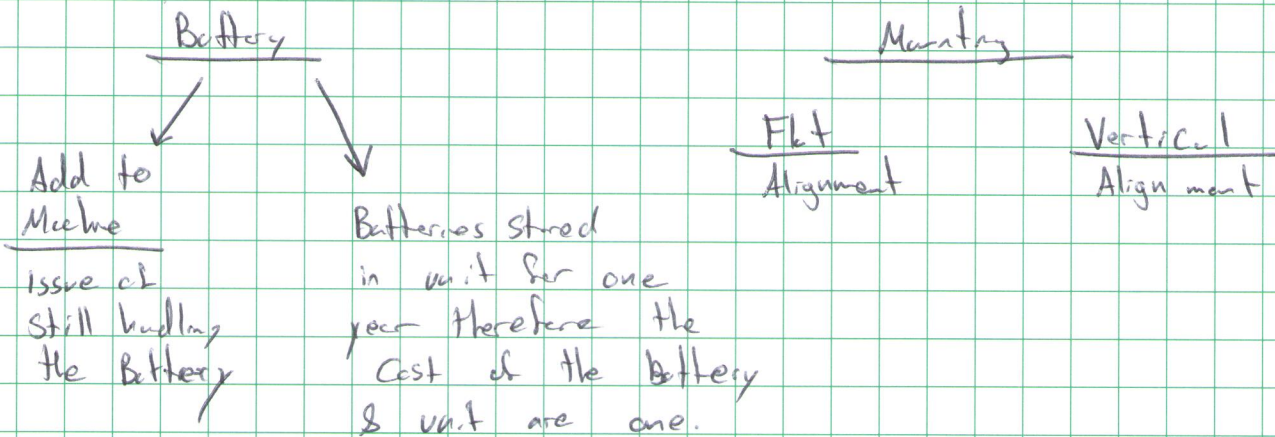 Battery
Add to
Machine
issue of
still handling
the Battery
Batteries stored
in unit for one
year therefore the
Cost of the battery
& unit are one.
Mounting
Flat
Alignment
Vertical
Alignment